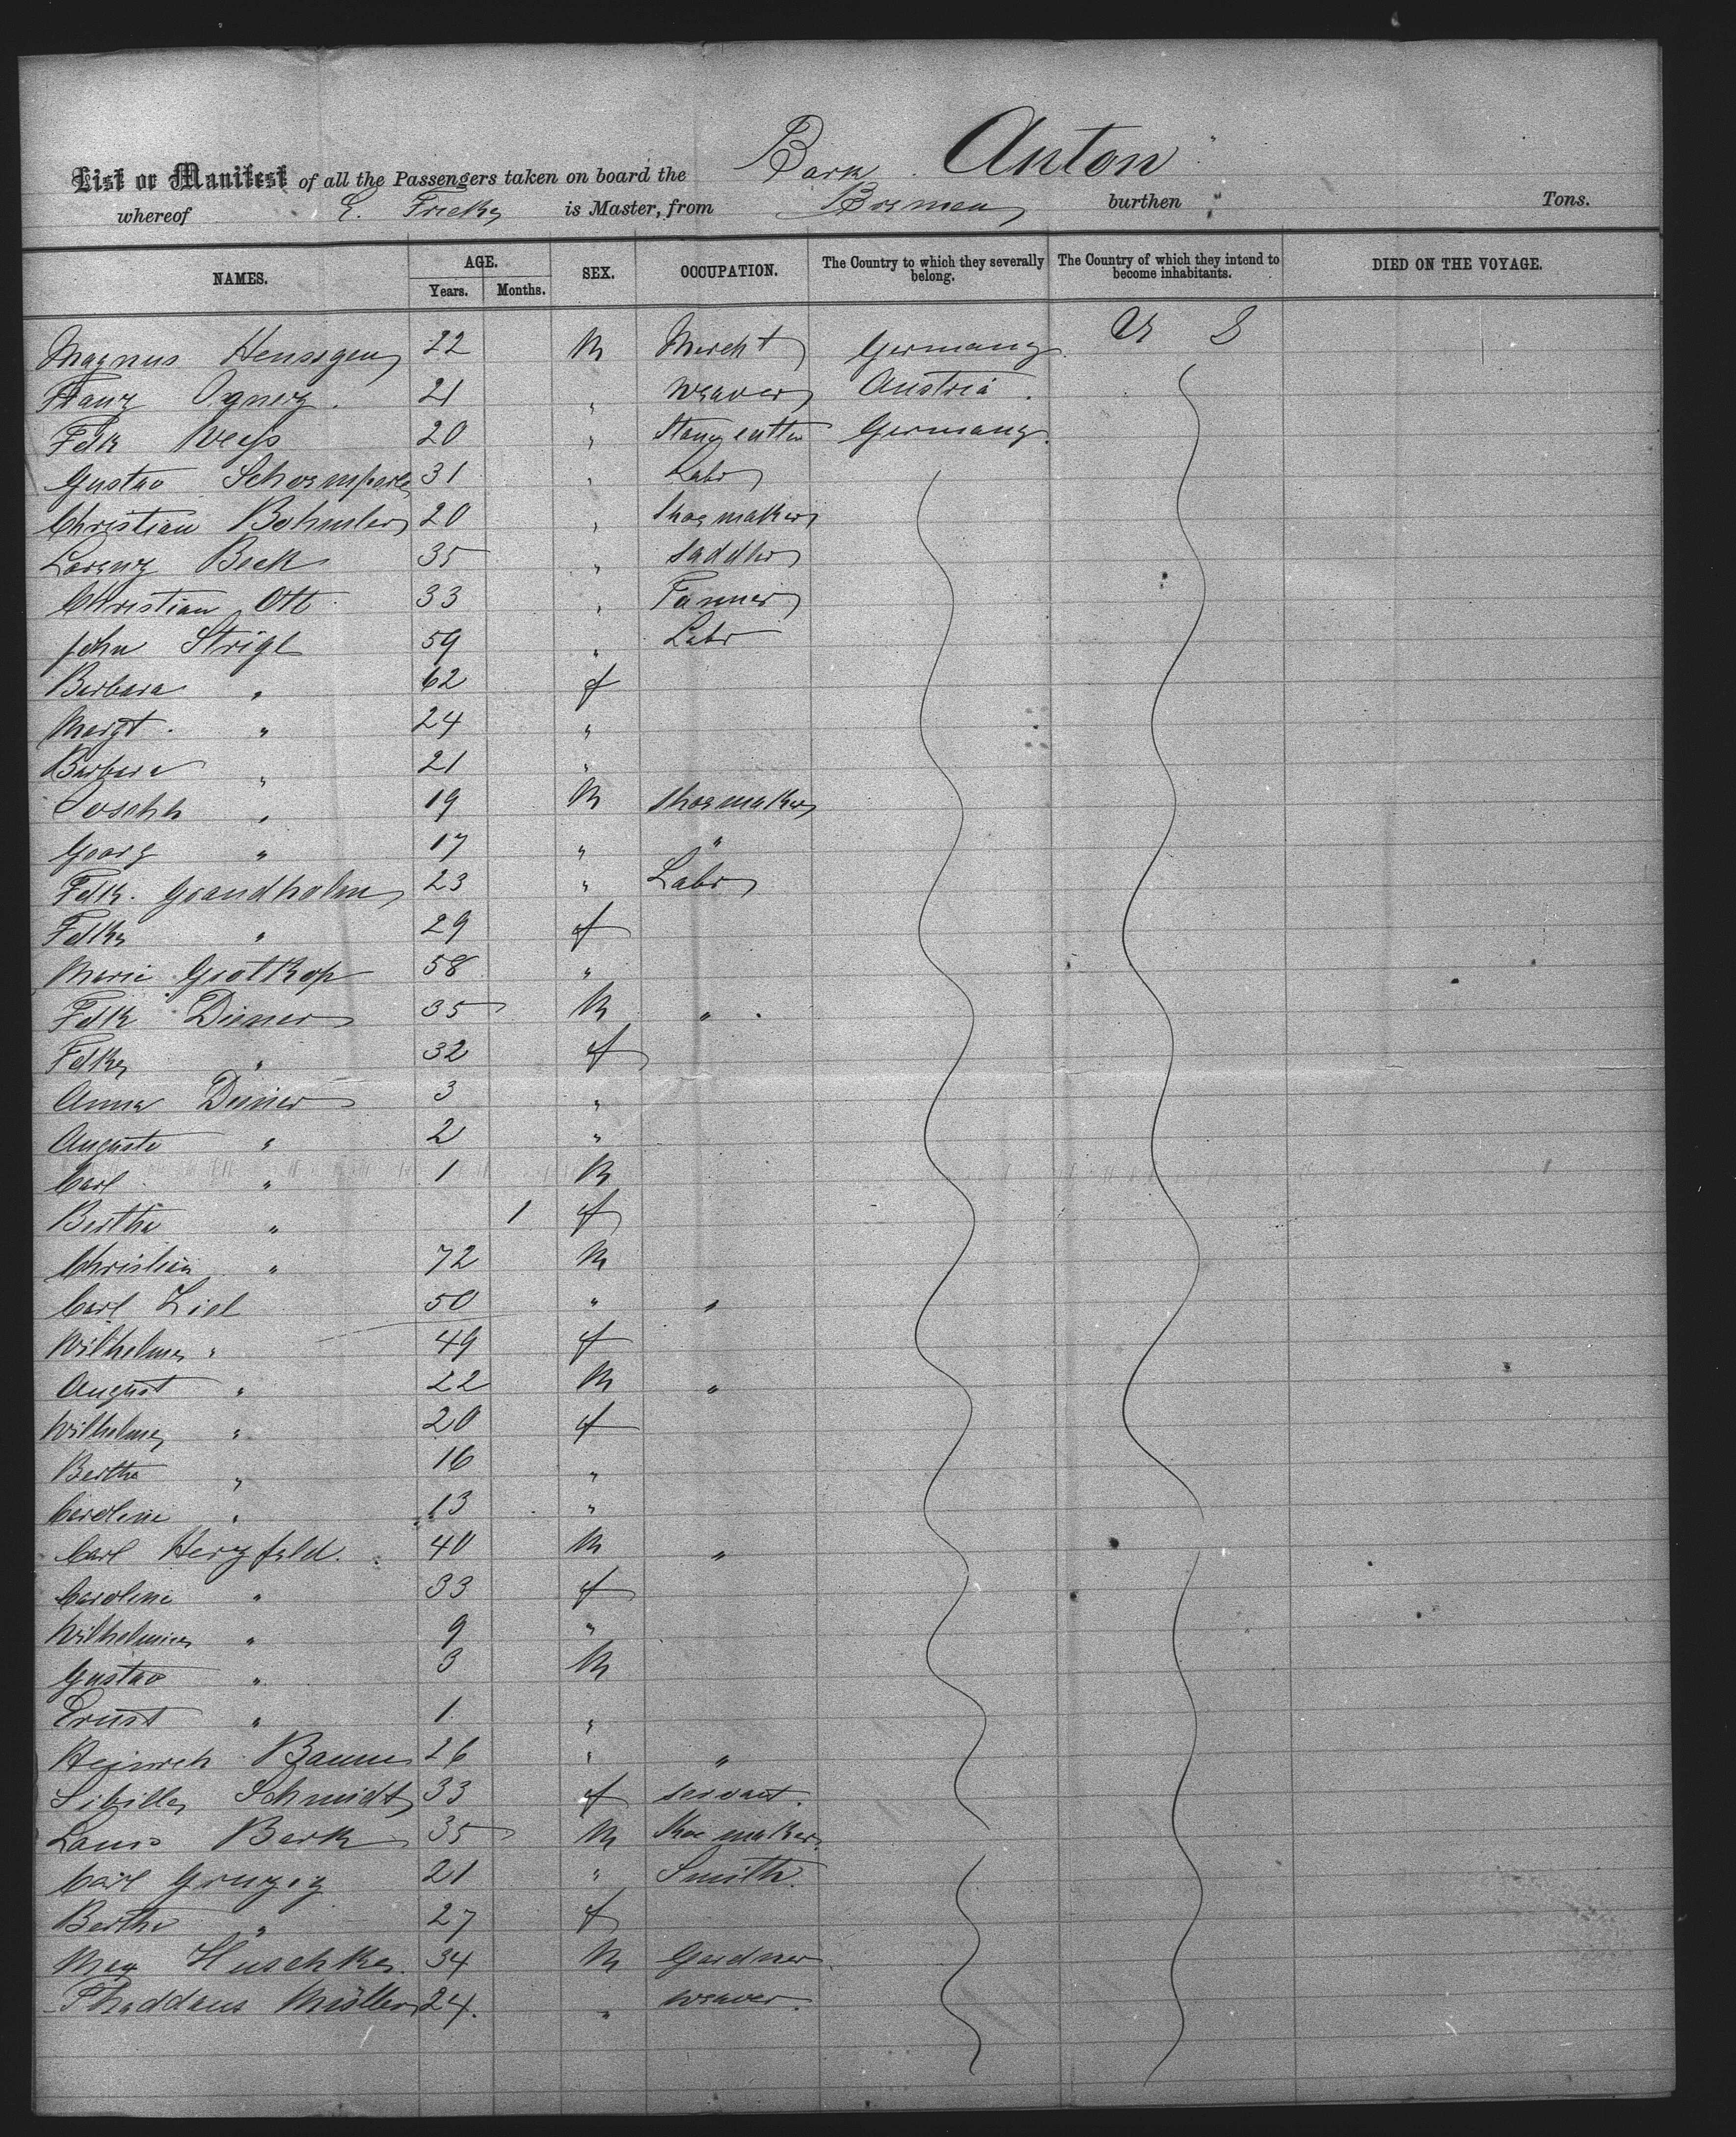 Bark Anton
List or Manifest of all the Passengers taken on board the
whereof E. Fricke is Master, from Bremen burthen Tons.
NAMES. AGE. Years. Months. SEX. OCCUPATION. The Country to which they severally belong. The Country of which they intend to become inhabitants. DIED ON THE VOYAGE.
Magnus 22 M Mercht Germany U S
Franz 21 " weaver Austria
Fdk Weiss 20 " Stone cutter Germany
Gustav 31 " Labr
Christian 20 " Shoemaker
Lorenz Beck 35 " Saddler
Christian Ott 33 "
John Strigl 59 " Labr
Barbara " 62 f
Margt. " 24 "
Barbara " 21 "
Joseph " 19 M shoemaker
Georg " 17 " "
Fdk. Grandholm 23 " Labr
Fdke " 29 f
Marie Grotkop 58 "
Fdk Diener 35 M "
Fdke " 32 f
Anna Diener 3 "
Auguste " 2 "
Carl " 1 M
Bertha " 1 f
Christian " 72 M
Carl Liel 50 " "
Wilhelmine " 49 f
August " 22 M "
Wilhelmine " 20 f
Bertha " 16 "
Caroline " 13 "
Carl Herzfeld. 40 M "
Caroline " 33 f
Wilhelmine " 9 "
Gustav " 3 M
Ernst " 1 "
Heinrich 26 " "
Sibilla Schmidt 33 f servant.
Louis 35 M Shoemaker
Carl 21 " Smith.
Bertha " 27 f
Max Huschke. 34 M Gardner.
Thaddaus Müller 24. " weaver.